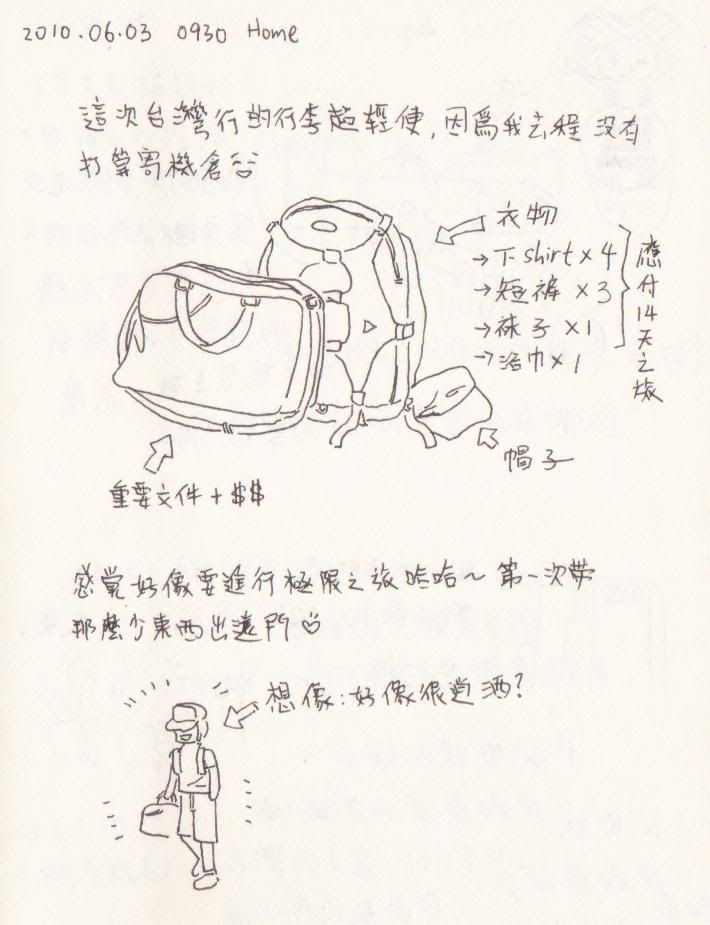 2010.06.03 0930 Home
這次台灣行的行李超輕便,因為我去程沒有
打算寄機倉
衣物
→T shirt × 4
→短褲 × 3
→袜子 × 1
→浴巾 × 1
應付14天之旅
帽子
重要文件 + $$
感覺好像要進行極限之旅哈哈～ 第一次带
那麼少東西出遠門
想像:好像很瀟洒?